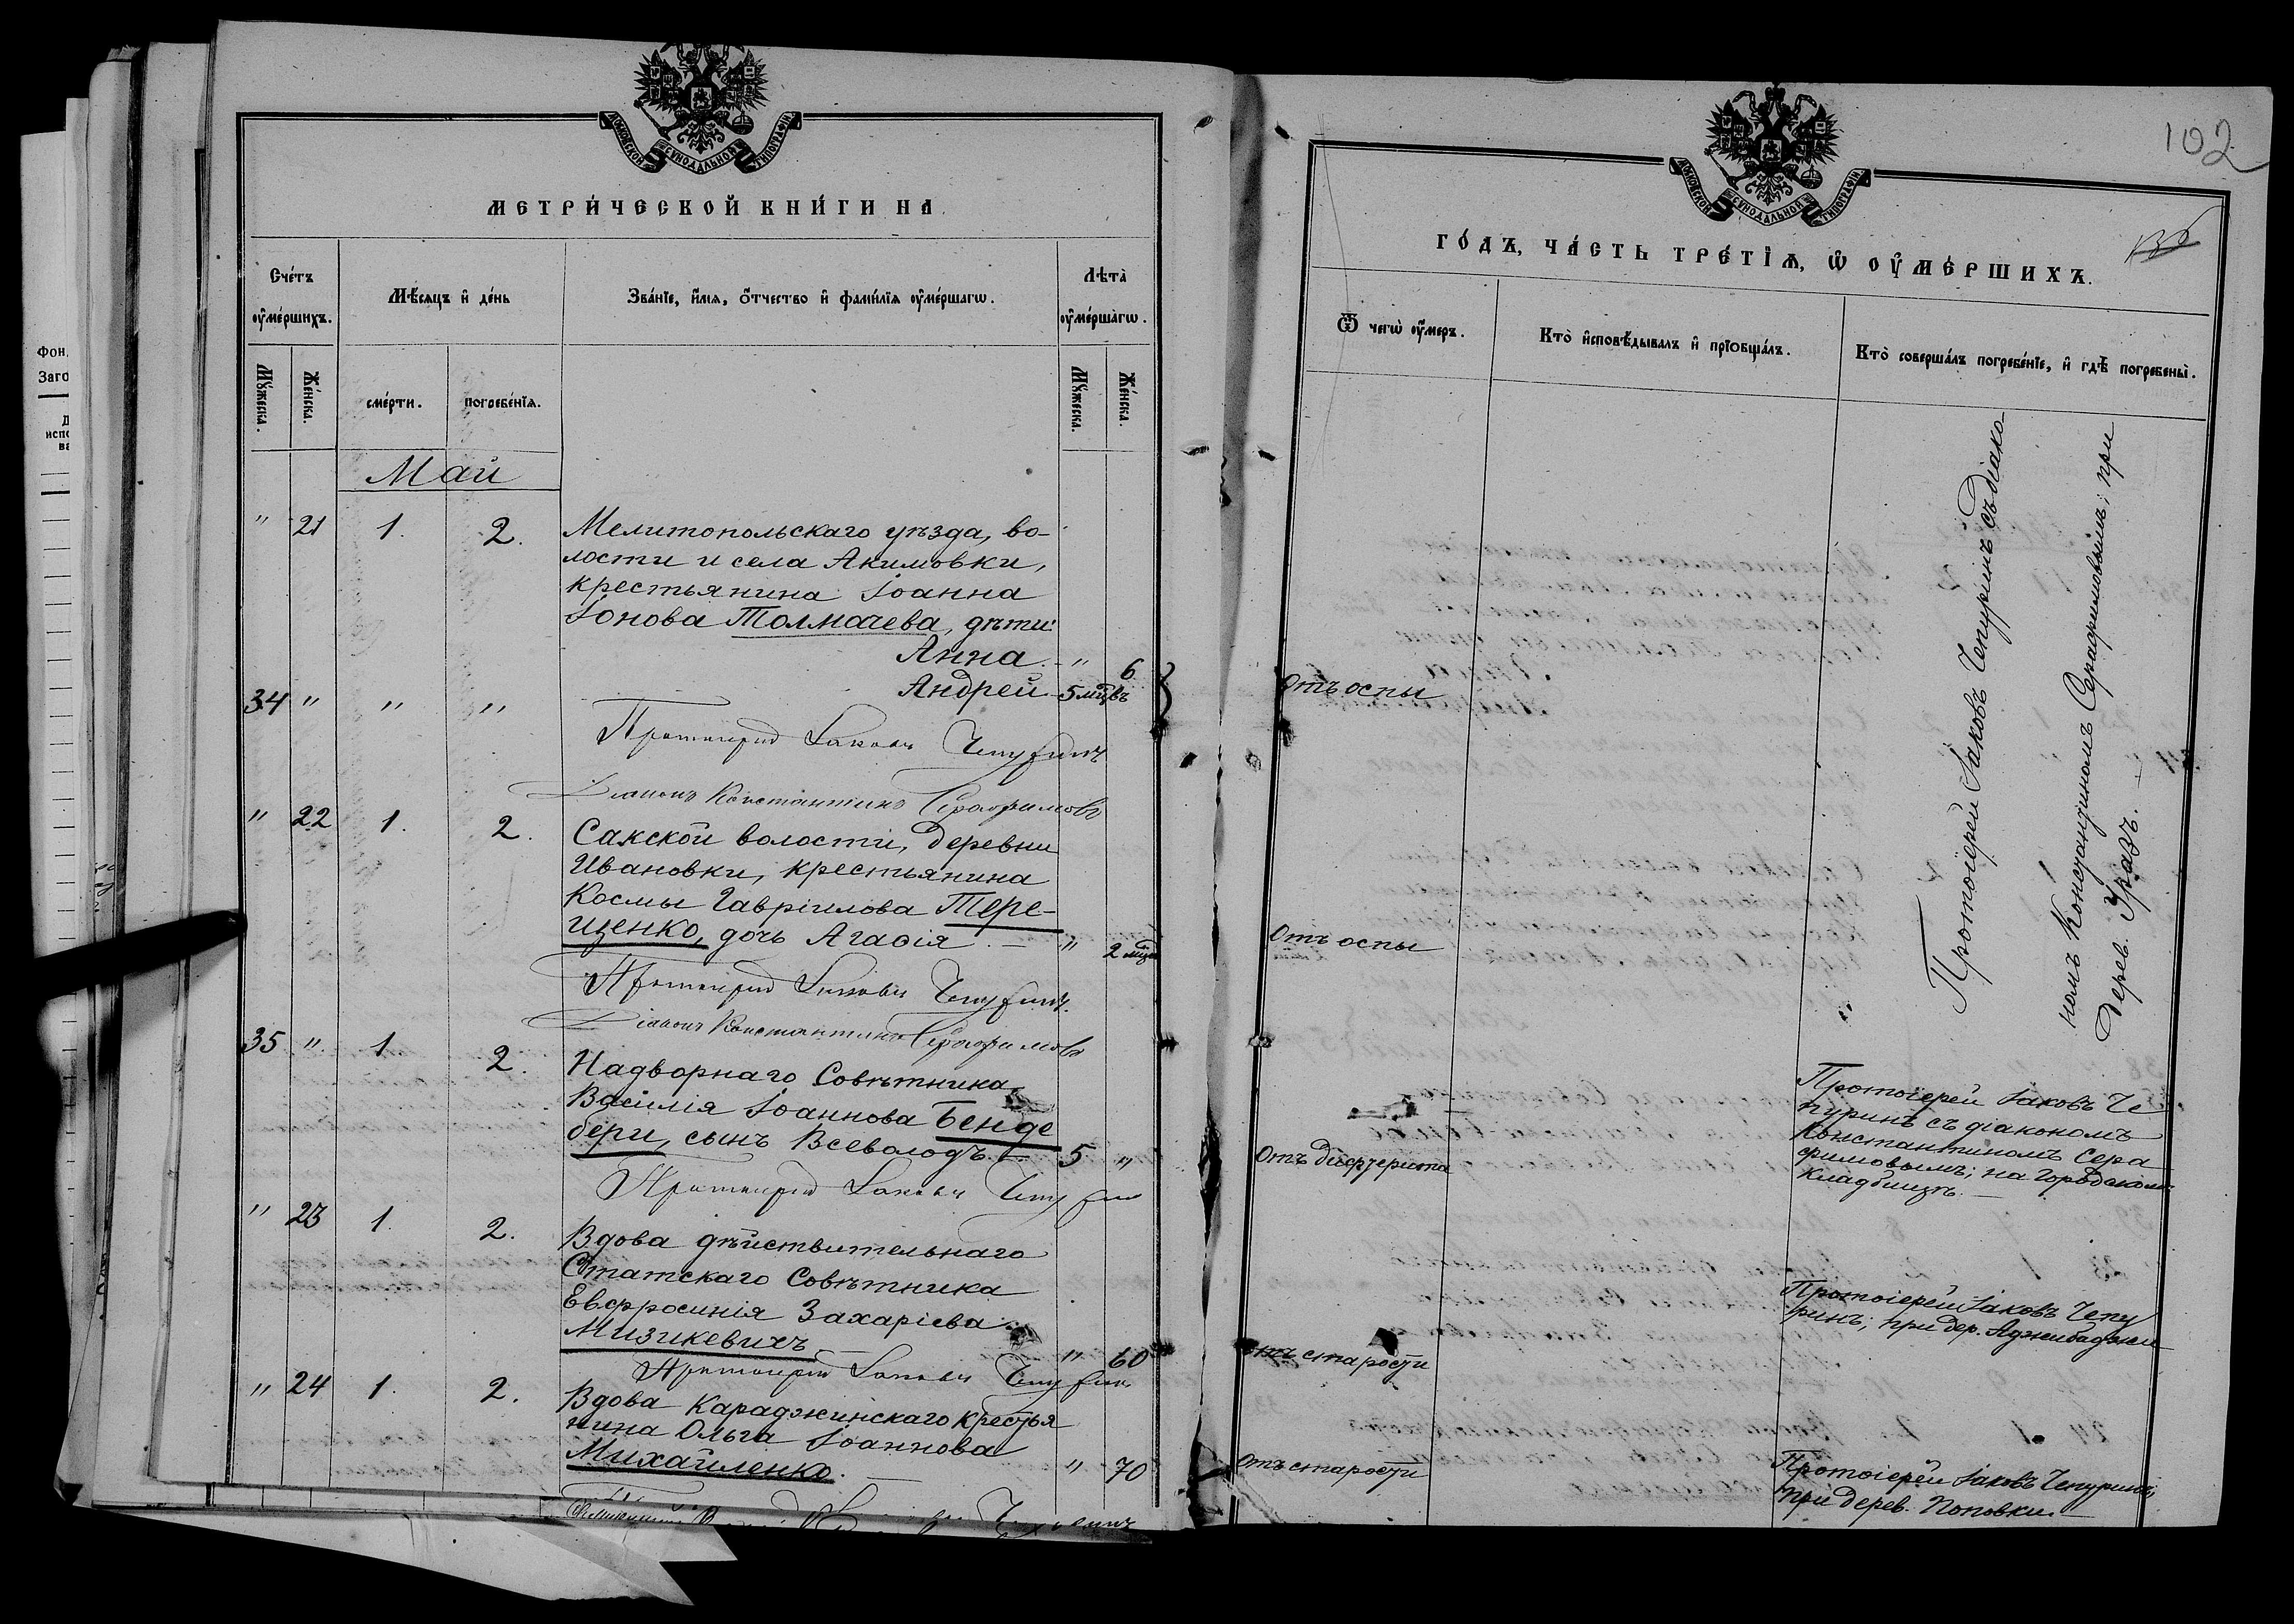 МОСКОВСКОЙ СѴНОДАЛЬНОЙ ТИПОГРАФІИ
МЕТРИ́ЧЕСКОЙ КНИ́ГИ НА
Сче́тъ ᲂу҆ме́ршихъ.
Мѣ́сяцъ и҆ де́нь
Зва́нїе, и҆́мѧ, ѻ҆́тчество и҆ фами́лїѧ ᲂу҆ме́ршагѡ.
Лѣта̀ ᲂу҆ме́ршагѡ.
Мꙋ́жеска.
Же́нска.
сме́рти.
погребе́нїѧ.
Мꙋ́жеска.
Же́нска.
Май
" 21 1. 2. Мелитопольскаго уѣзда, во-
лости и села Акимовки,
крестьянина Іоанна
Іонова Толмачева, дѣти:
Анна. - " 6
34 " " " Андрей - 5 мцвъ
Протоіерей Іаковъ Чепуринъ
Діаконъ Константинъ Серафимовъ
" 22 1. 2. Сакской волости, деревни
Ивановки, крестьянина
Космы Гавріилова Тере-
щенко, дочь Агаѳія. - " 2 мца
Протоіерей Іаковъ Чепуринъ.
Діаконъ Константинъ Серафимовъ
35 " 1 2. Надворнаго Совѣтника
Василія Іоаннова Бенде
бери, сынъ Всеволодъ. - 5 "
Протоіерей Іаковъ Чепурин
" 23 1. 2. Вдова дѣйствительнаго
Статскаго Совѣтника
Евфросинія Захаріева
Мизикевичъ - " 60
Протоіерей Іаковъ Чепурин
" 24 1. 2. Вдова Караджинскаго крестья
нина Ольга Іоаннова
Михайленко. - " 70
МОСКОВСКОЙ СѴНОДАЛЬНОЙ ТИПОГРАФІИ
102
136
ГО́ДЪ, ЧА́СТЬ ТРЕ́ТЇѦ, Ѡ҆ ОУ҆МЕ́РШИХЪ.
Ѿ чегѡ̀ ᲂу҆́меръ.
Кто̀ и҆сповѣ́дывалъ и҆ прїѻбща́лъ.
Кто̀ соверша́лъ погребе́нїе, и҆ гдѣ̀ погребены̀.
Отъ оспы
Отъ оспы
Протоіерей Іаковъ Чепуринъ съ діако-
номъ Константиномъ Серафимовымъ; при
дерев. Уразъ. -
Отъ дифтерита
Протоіерей Іаковъ Че
пуринъ съ діакономъ
Константиномъ Сера
фимовымъ; на городском
кладбищѣ. -
отъ старости
Протоіерей Іаковъ Чепу
ринъ; при дер. Аджибаджи
отъ старости
Протоіерей Іаковъ Чепуринъ;
при дерев. Поповки. -
Фон.
Заго
Д
испо
ва